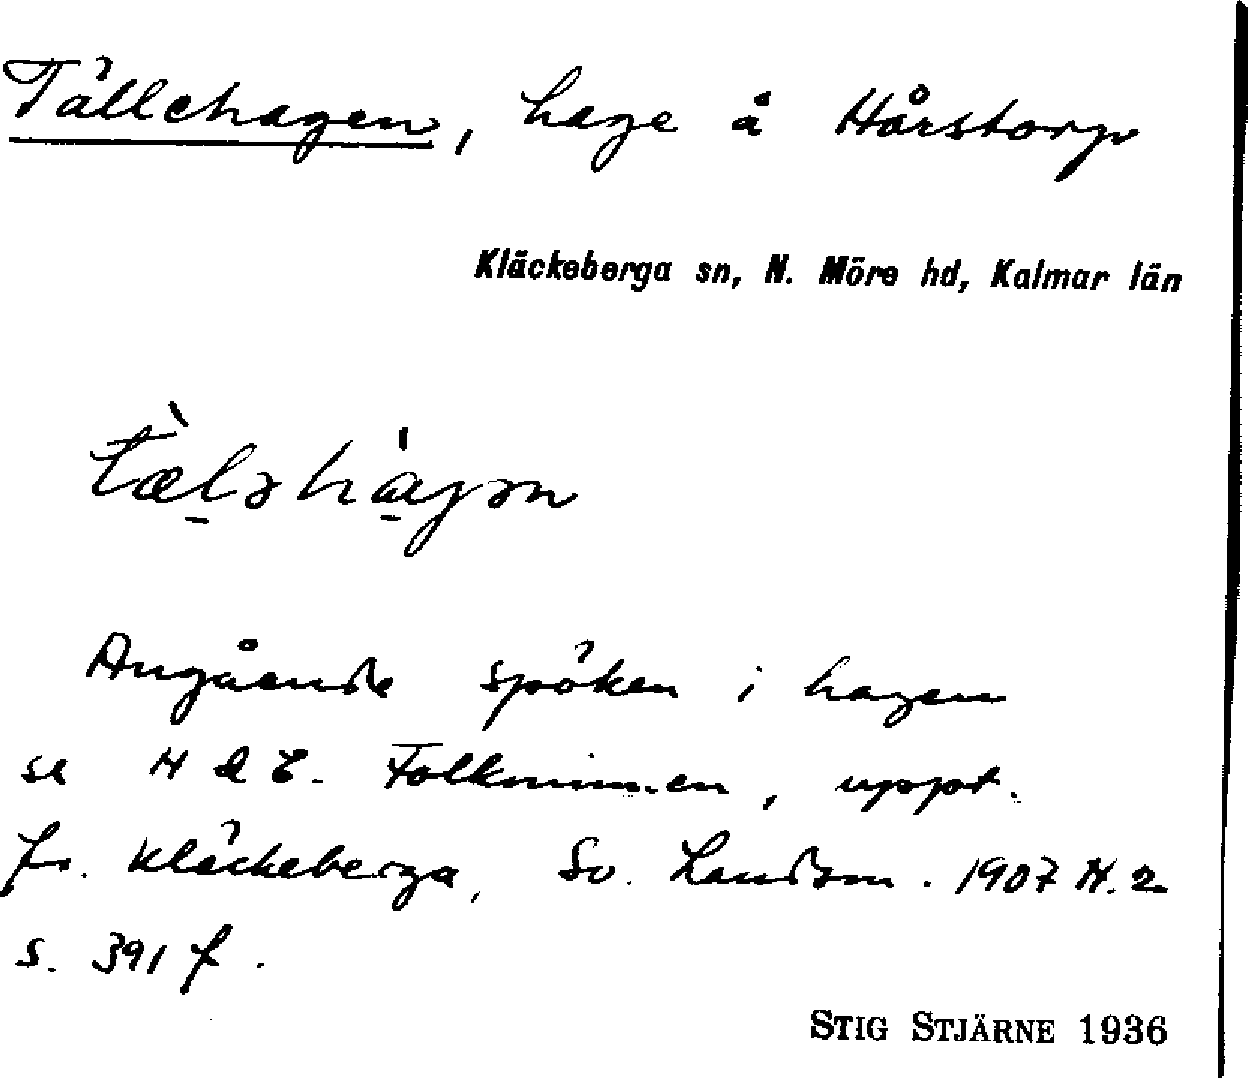 Tällehagen, hage å Hårstorp
Kläckeberga sn, N. Möre hd, Kalmar län
tæ̀ləhàgən
Angående spöken i hagen
se
Folkminnen, uppt.
fr. Kläckeberga, Sv. Landsm. 1907 H. 2
s. 391 f.
STIG STJÄRNE 1936